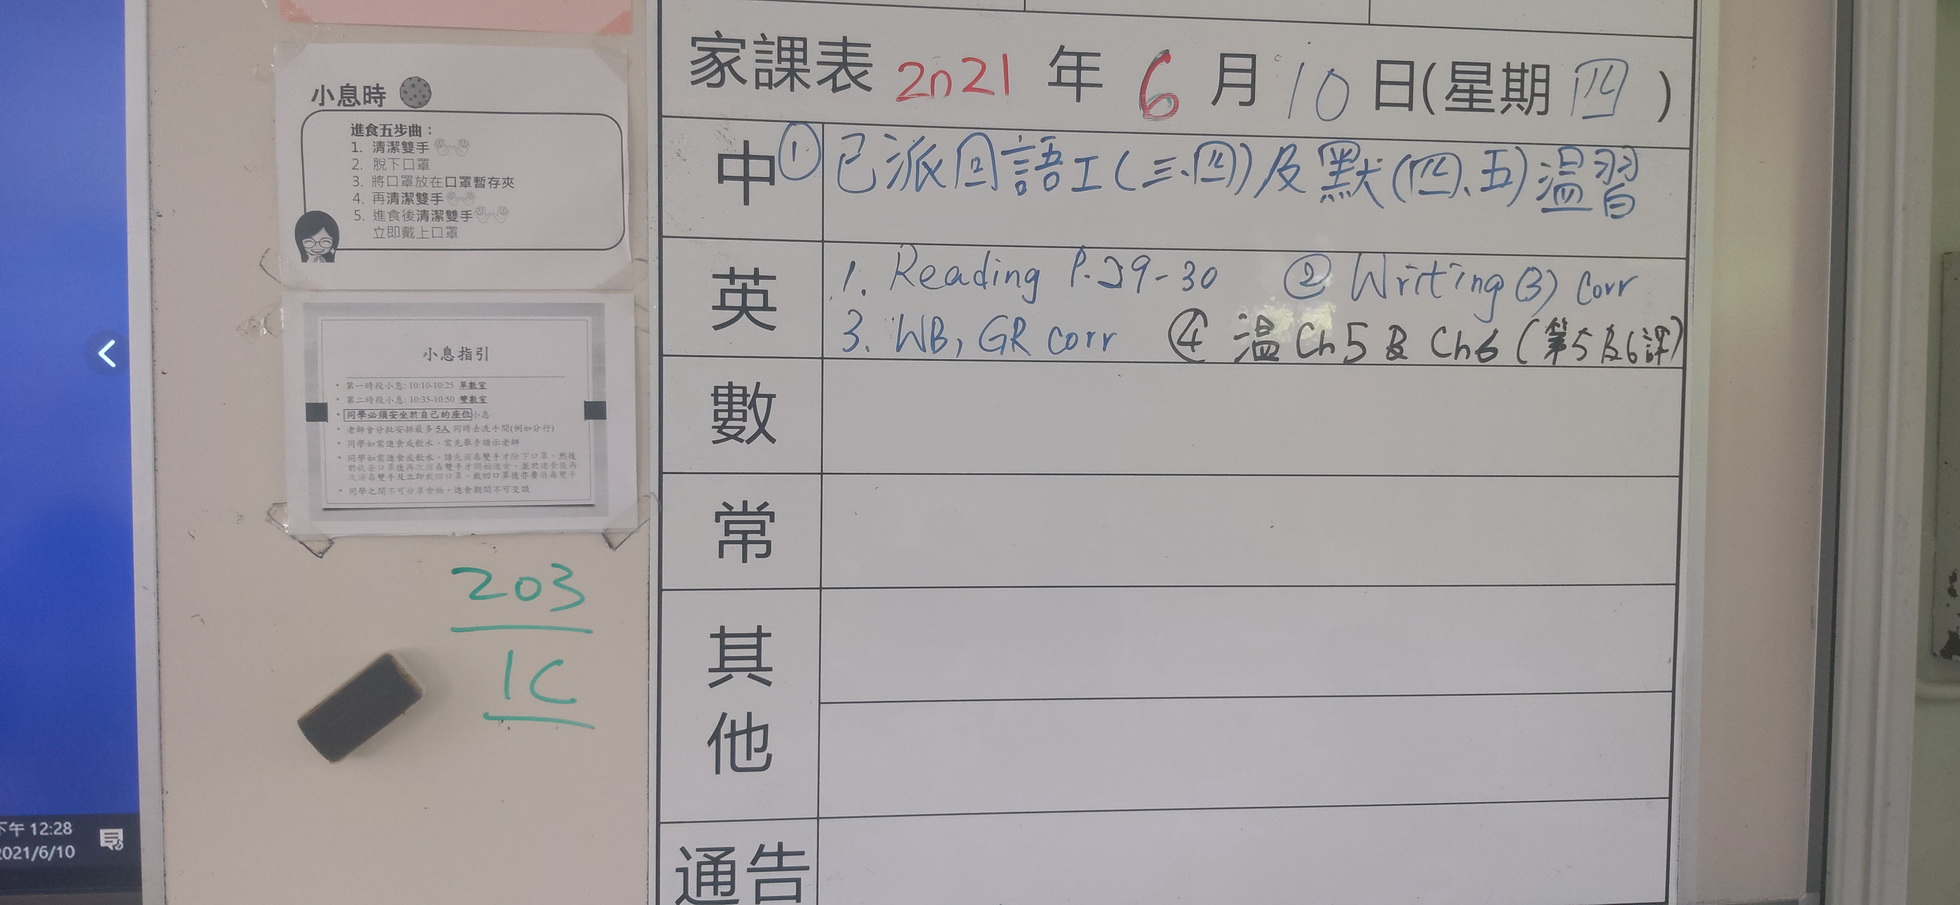 小息時
進食五步曲：
1. 清潔雙手
2. 脫下口罩
3. 將口罩放在口罩暫存夾
4. 再清潔雙手
5. 進食後清潔雙手
立即戴上口罩
小息指引
• 第一時段小息: 10:10-10:25 單數室
• 第二時段小息: 10:35-10:50 雙數室
• 同學必須安坐於自己的座位小息
• 老師會分批安排最多5人同時去洗手間(例如分行)
• 同學如需進食或飲水，需先舉手請示老師
• 同學如需進食或飲水，請先消毒雙手才除下口罩，然後
• 同學之間不可分享食物，進食期間不可交談
203
1C
下午 12:28
2021/6/10
家課表 2021 年 6 月 10 日(星期 四 )
中 ① 已派回語工(三、四)及默(四、五)溫習
英 1. Reading P.29-30 ② Writing (3) corr
3. WB, GR corr ④ 溫 Ch5 及 Ch6 (第5及6課)
數
常
其他
通告